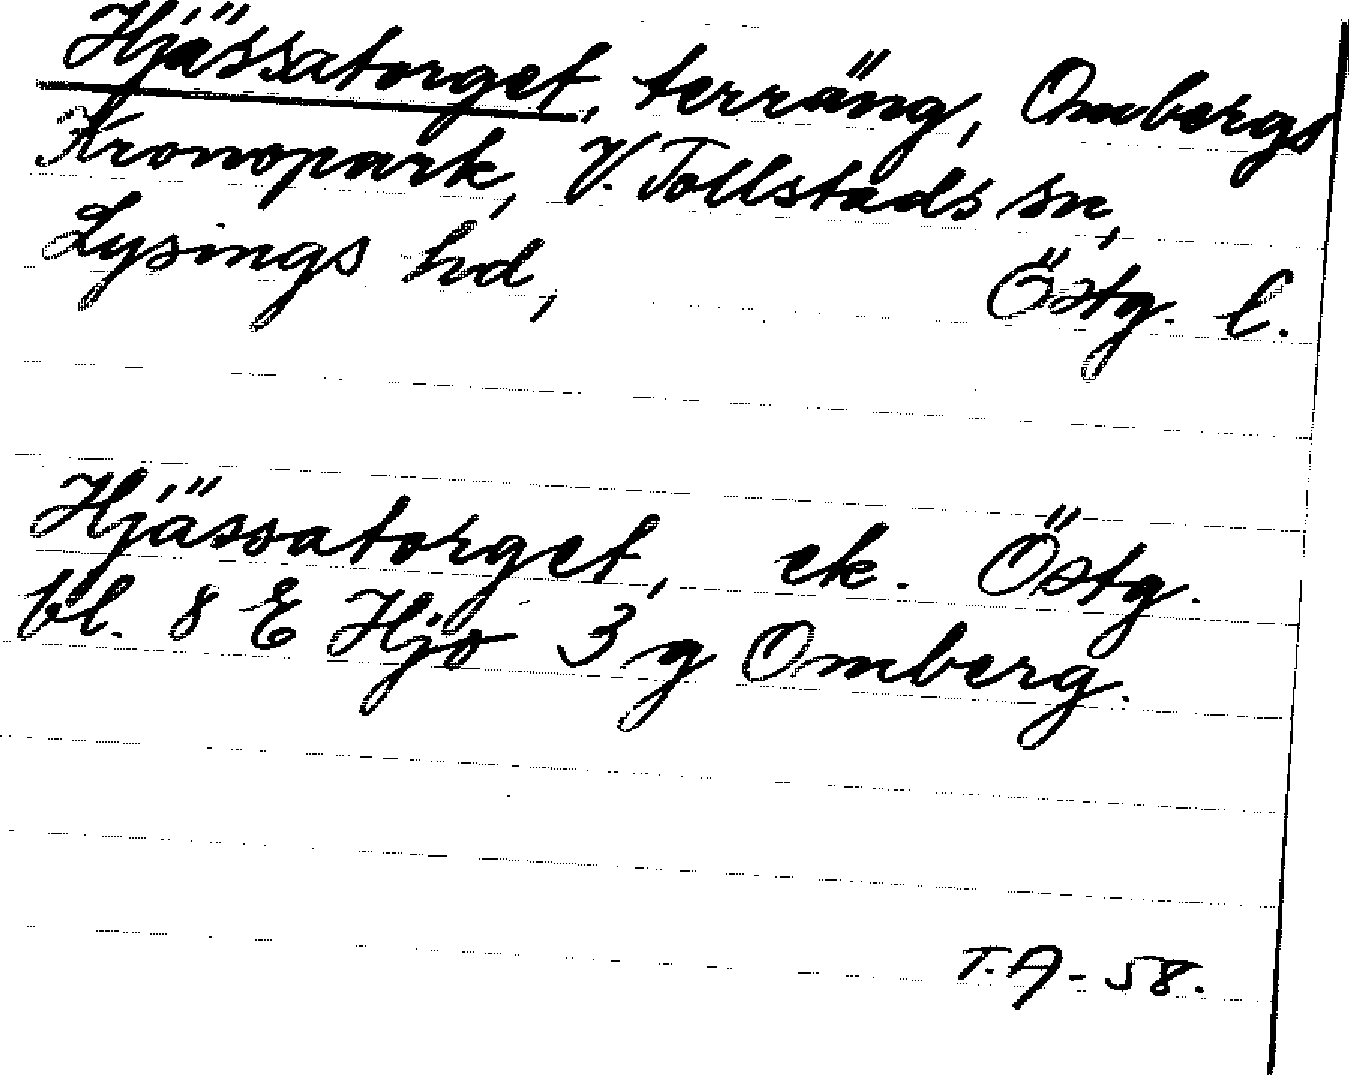 Hjässatorget, terräng, Ombergs
Kronopark, V. Tollstads sn,
Lysings hd, Östg. l.
Hjässatorget, ek. Östg.
bl. 8 E Hjo 3 g Omberg.
T.A-58.